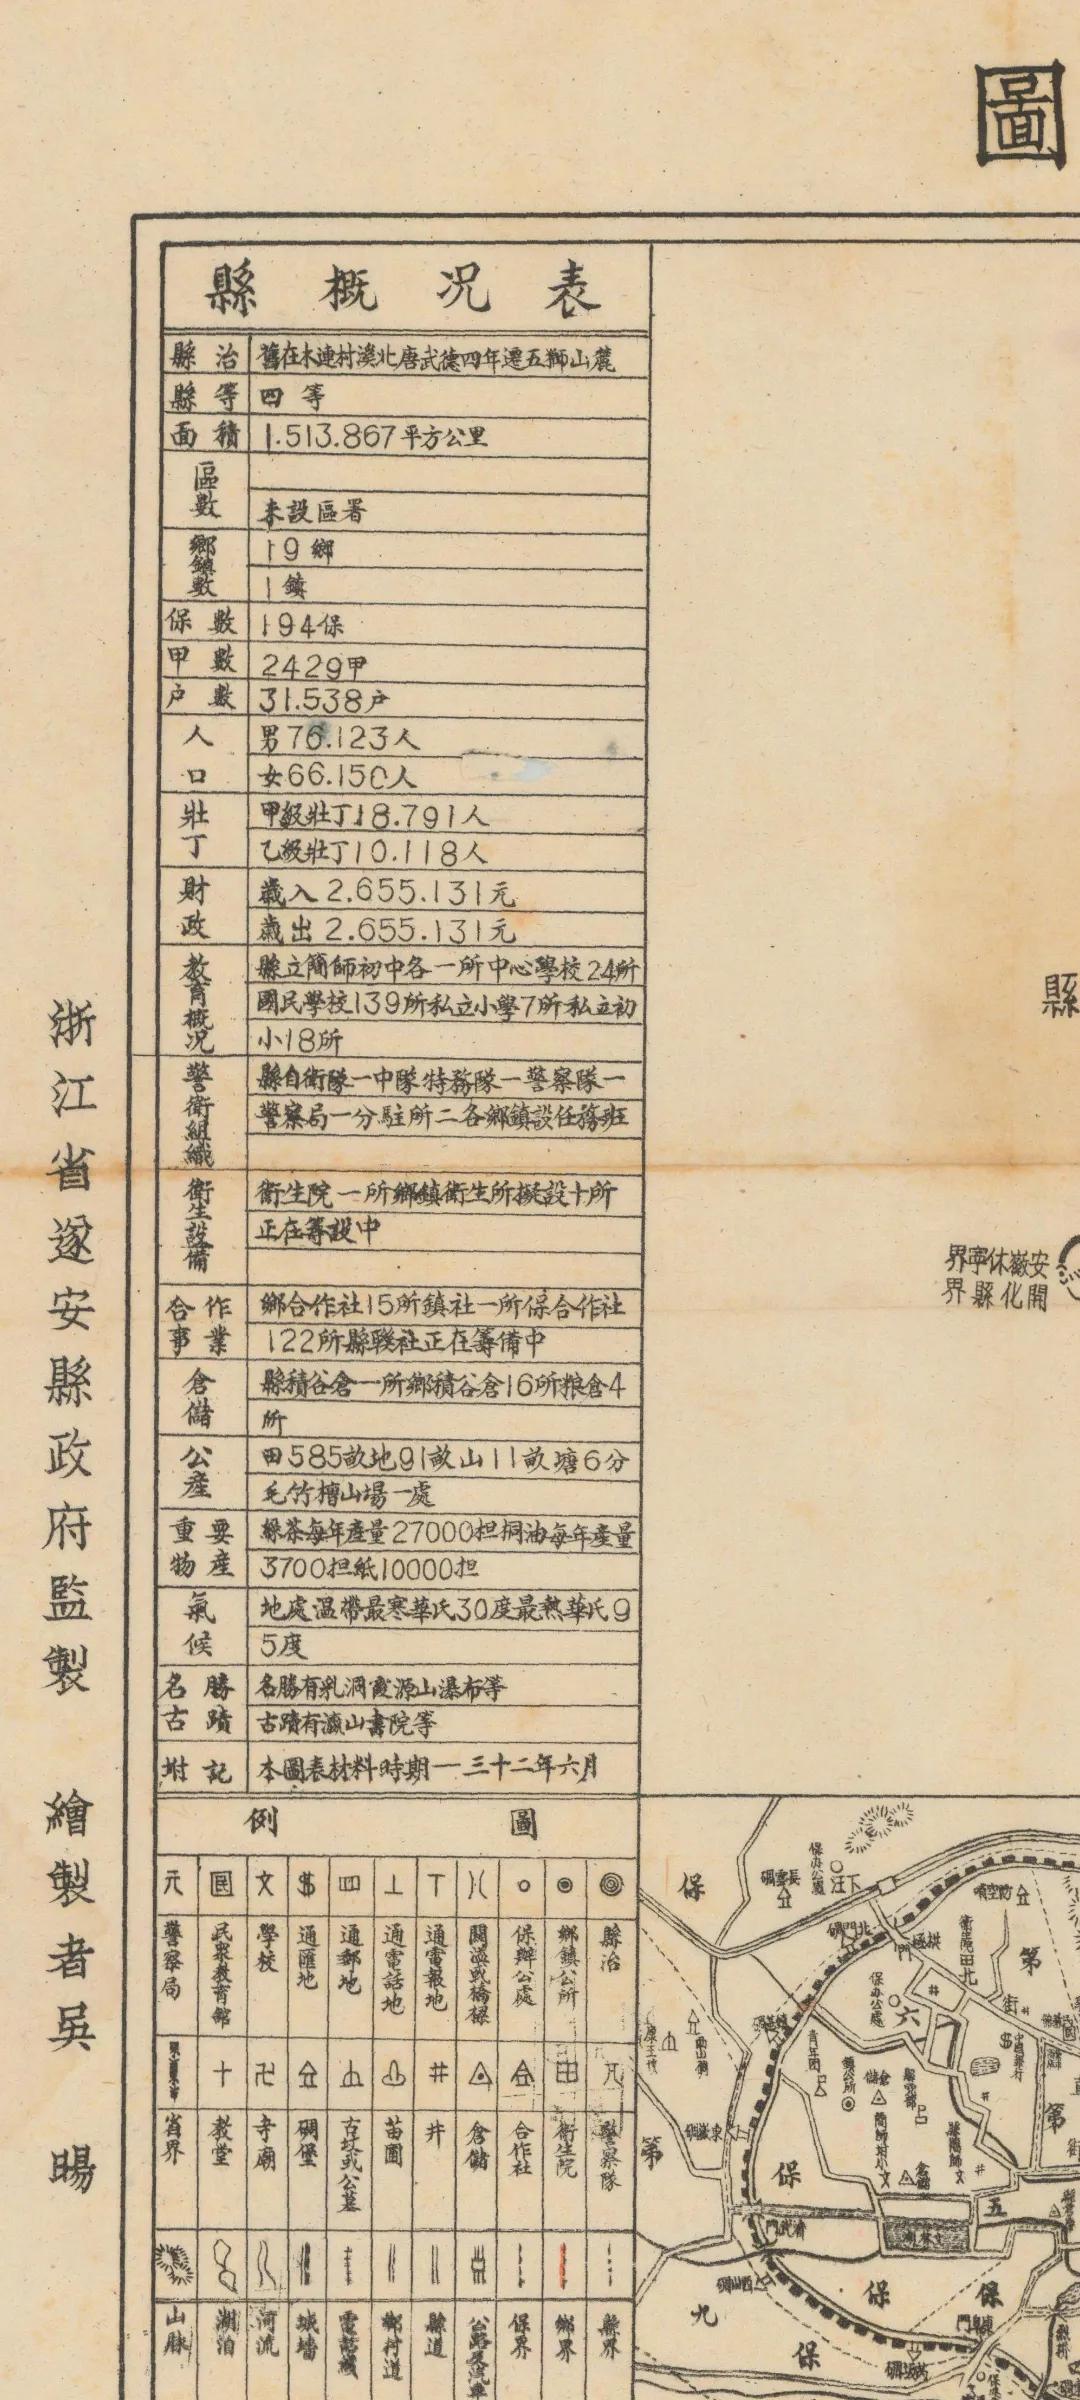 圖
縣概況表
縣治 舊在木連村溪北唐武德四年遷五獅山麓
縣等 四等
面積 1.513.867平方公里
區數
未設區署
鄉鎮數 19鄉
1鎮
保數 194保
甲數 2429甲
户數 31.538户
人口 男76.123人
女66.150人
壯丁 甲級壯丁18.791人
乙級壯丁10.118人
財政 歲入2.655.131元
歲出2.655.131元
教育概况 縣立簡師初中各一所中心學校24所
國民學校139所私立小學7所私立初
小18所
警衛組織 縣自衛隊一中隊特務隊一警察隊一
警察局一分駐所二各鄉鎮設任務班
衛生設備 衛生院一所鄉鎮衛生所擬設十所
正在籌設中
合作事業 鄉合作社15所鎮社一所保合作社
122所縣聯社正在籌備中
倉儲 縣積谷倉一所鄉積谷倉16所粮倉4
所
公產 田585畝地91畝山11畝塘6分
毛竹檀山場一處
重要物産 綠茶每年產量27000担桐油每年產量
3700担紙10000担
氣候 地處溫帶最寒華氏30度最熱華氏9
5度
名勝古蹟 名勝有乳洞霞源山瀑布等
古蹟有瀛山書院等
坿記 本圖表材料時期一三十二年六月
浙江省遂安縣政府監製 繪製者吳暘
例圖
警察局 民眾教育館 學校 通匯地 通郵地 通電話地 通電報地 關溫或橋樑 保辦公處 鄉鎮公所 縣治
省界 教堂 寺廟 碉堡 古坟或公墓 苗圃 井 倉儲 合作社 衛生院 警察隊
山脉 湖泊 河流 城墻 電話綫 鄉村道 縣道 保界 鄉界 縣界
縣
界寧休徽安
界縣化開
保
保辦公處
汪下
碉雲長
碉空防
碉門北
門極拱
衛生院
北
第
街
六
保办公處
青年团
鎮公所
倉儲
簡師坿小文
直
第
街
碉嶽東
第
保
五
碉山西
保
保
九
保